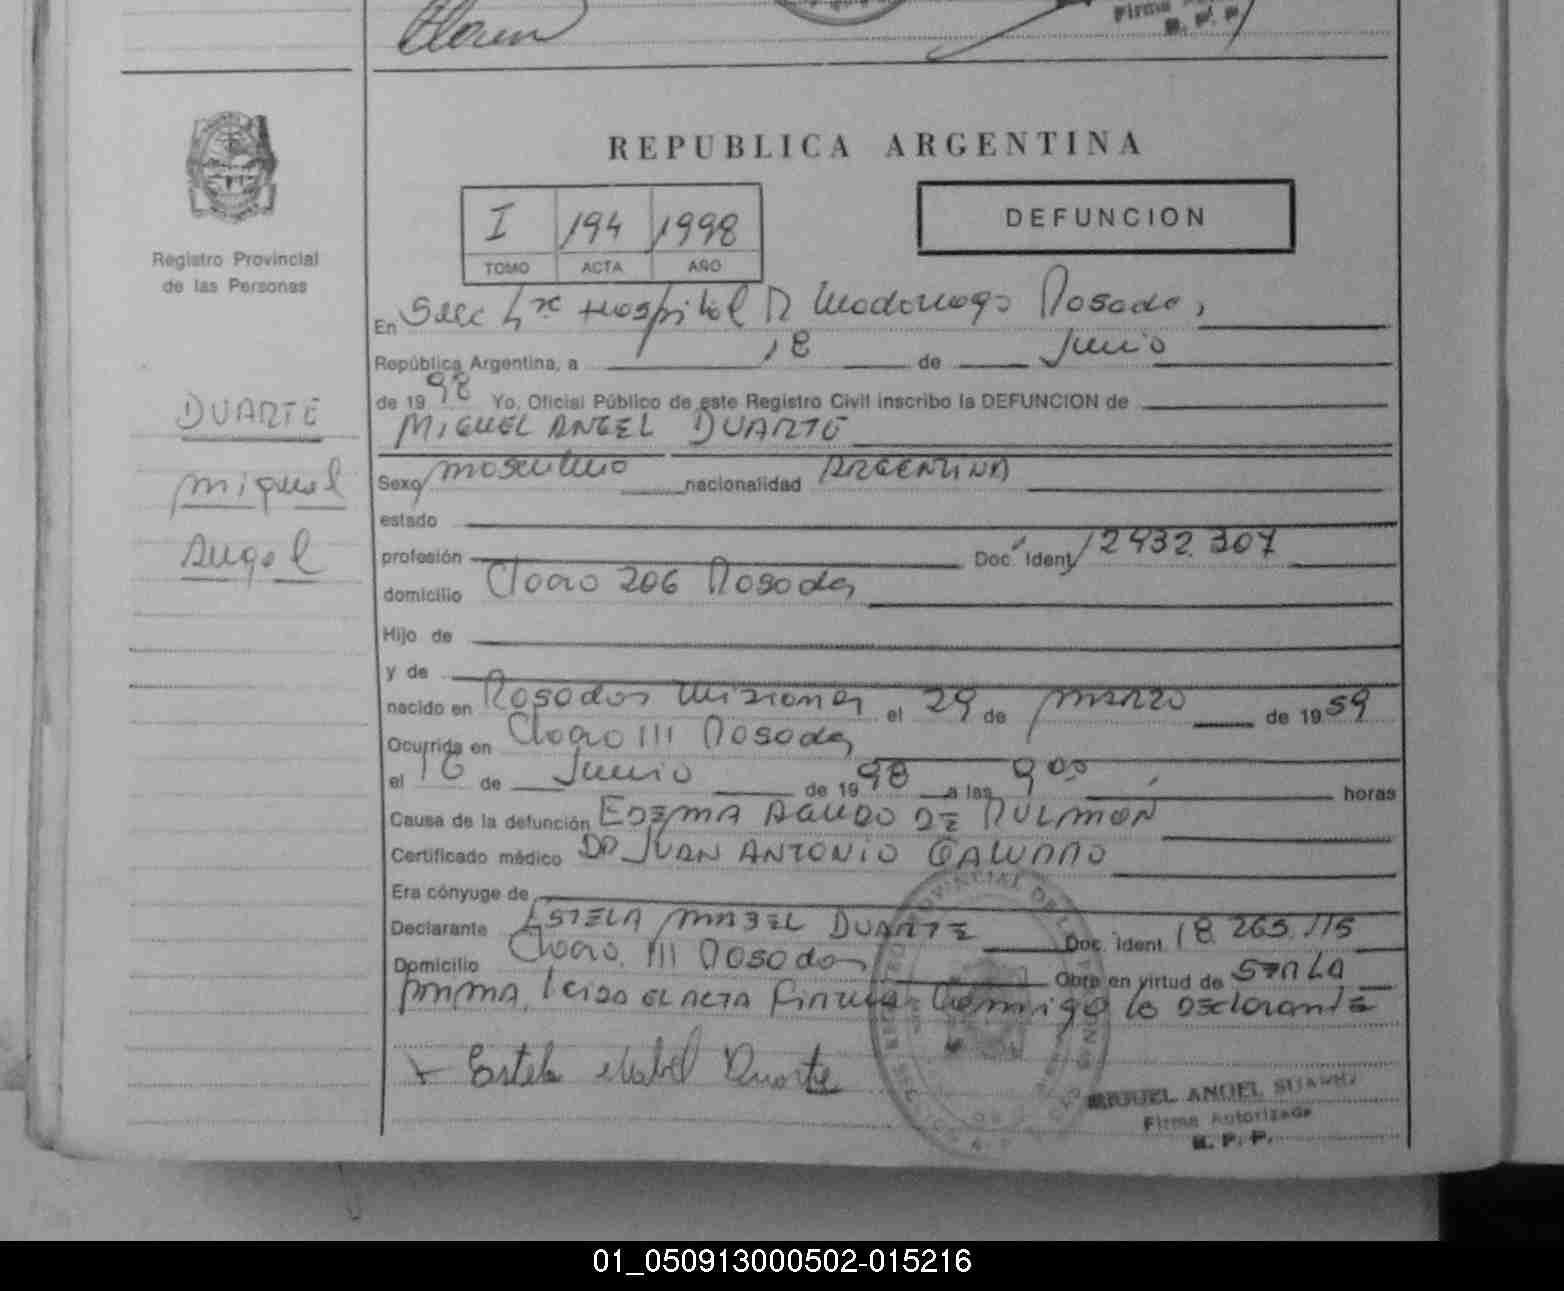 Firma
REPUBLICA ARGENTINA
I 194 1998
TOMO ACTA AÑO
DEFUNCION
Registro Provincial
de las Personas
DUARTE
Miguel
Angel
En Secc 4ª Hospital R Madariaga Posadas,
República Argentina, a 18 de Junio
de 1998 Yo, Oficial Público de este Registro Civil inscribo la DEFUNCION de
MIGUEL ANGEL DUARTE
Sexo masculino nacionalidad ARGENTINA
estado
profesión Doc. Ident 12432.307
domicilio Chaco 206 Posadas
Hijo de
y de
nacido en Posadas Misiones el 29 de marzo de 1959
Ocurrida en Chaco 111 Posadas
el 16 de Junio de 1998 a las 9 00 horas
Causa de la defunción EDEMA AGUDO DE PULMON
Certificado médico DR JUAN ANTONIO
Era cónyuge de
Declarante ESTELA MABEL DUARTE Doc. Ident. 18.265.115
Domicilio Chaco 111 Posadas Obra en virtud de
Leida el ACTA Firma Conmigo la Declarante
Estela Mabel Duarte
MIGUEL ANGEL SUAREZ
Firma Autorizada
R. P. P.
01_050913000502-015216